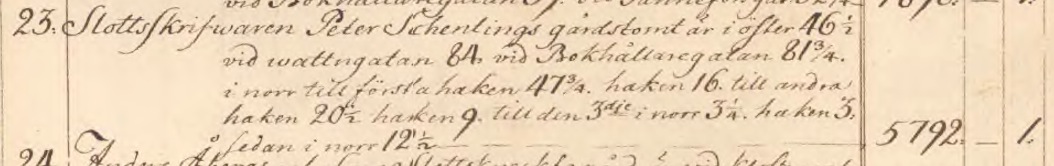 vid Bokhållaregatan
23. Slottsskrifwaren Peter Schenlings gårdstomt är i öster 46½
vid wattngatan 84. vid Bokhållaregatan 81¾.
i norr till första haken 47¾. haken 16. till andra
haken 20½ haken 9. till den 3dje i norr 3¼. haken 3.
sedan i norr 12½ 5792. — 1.
24. Anders